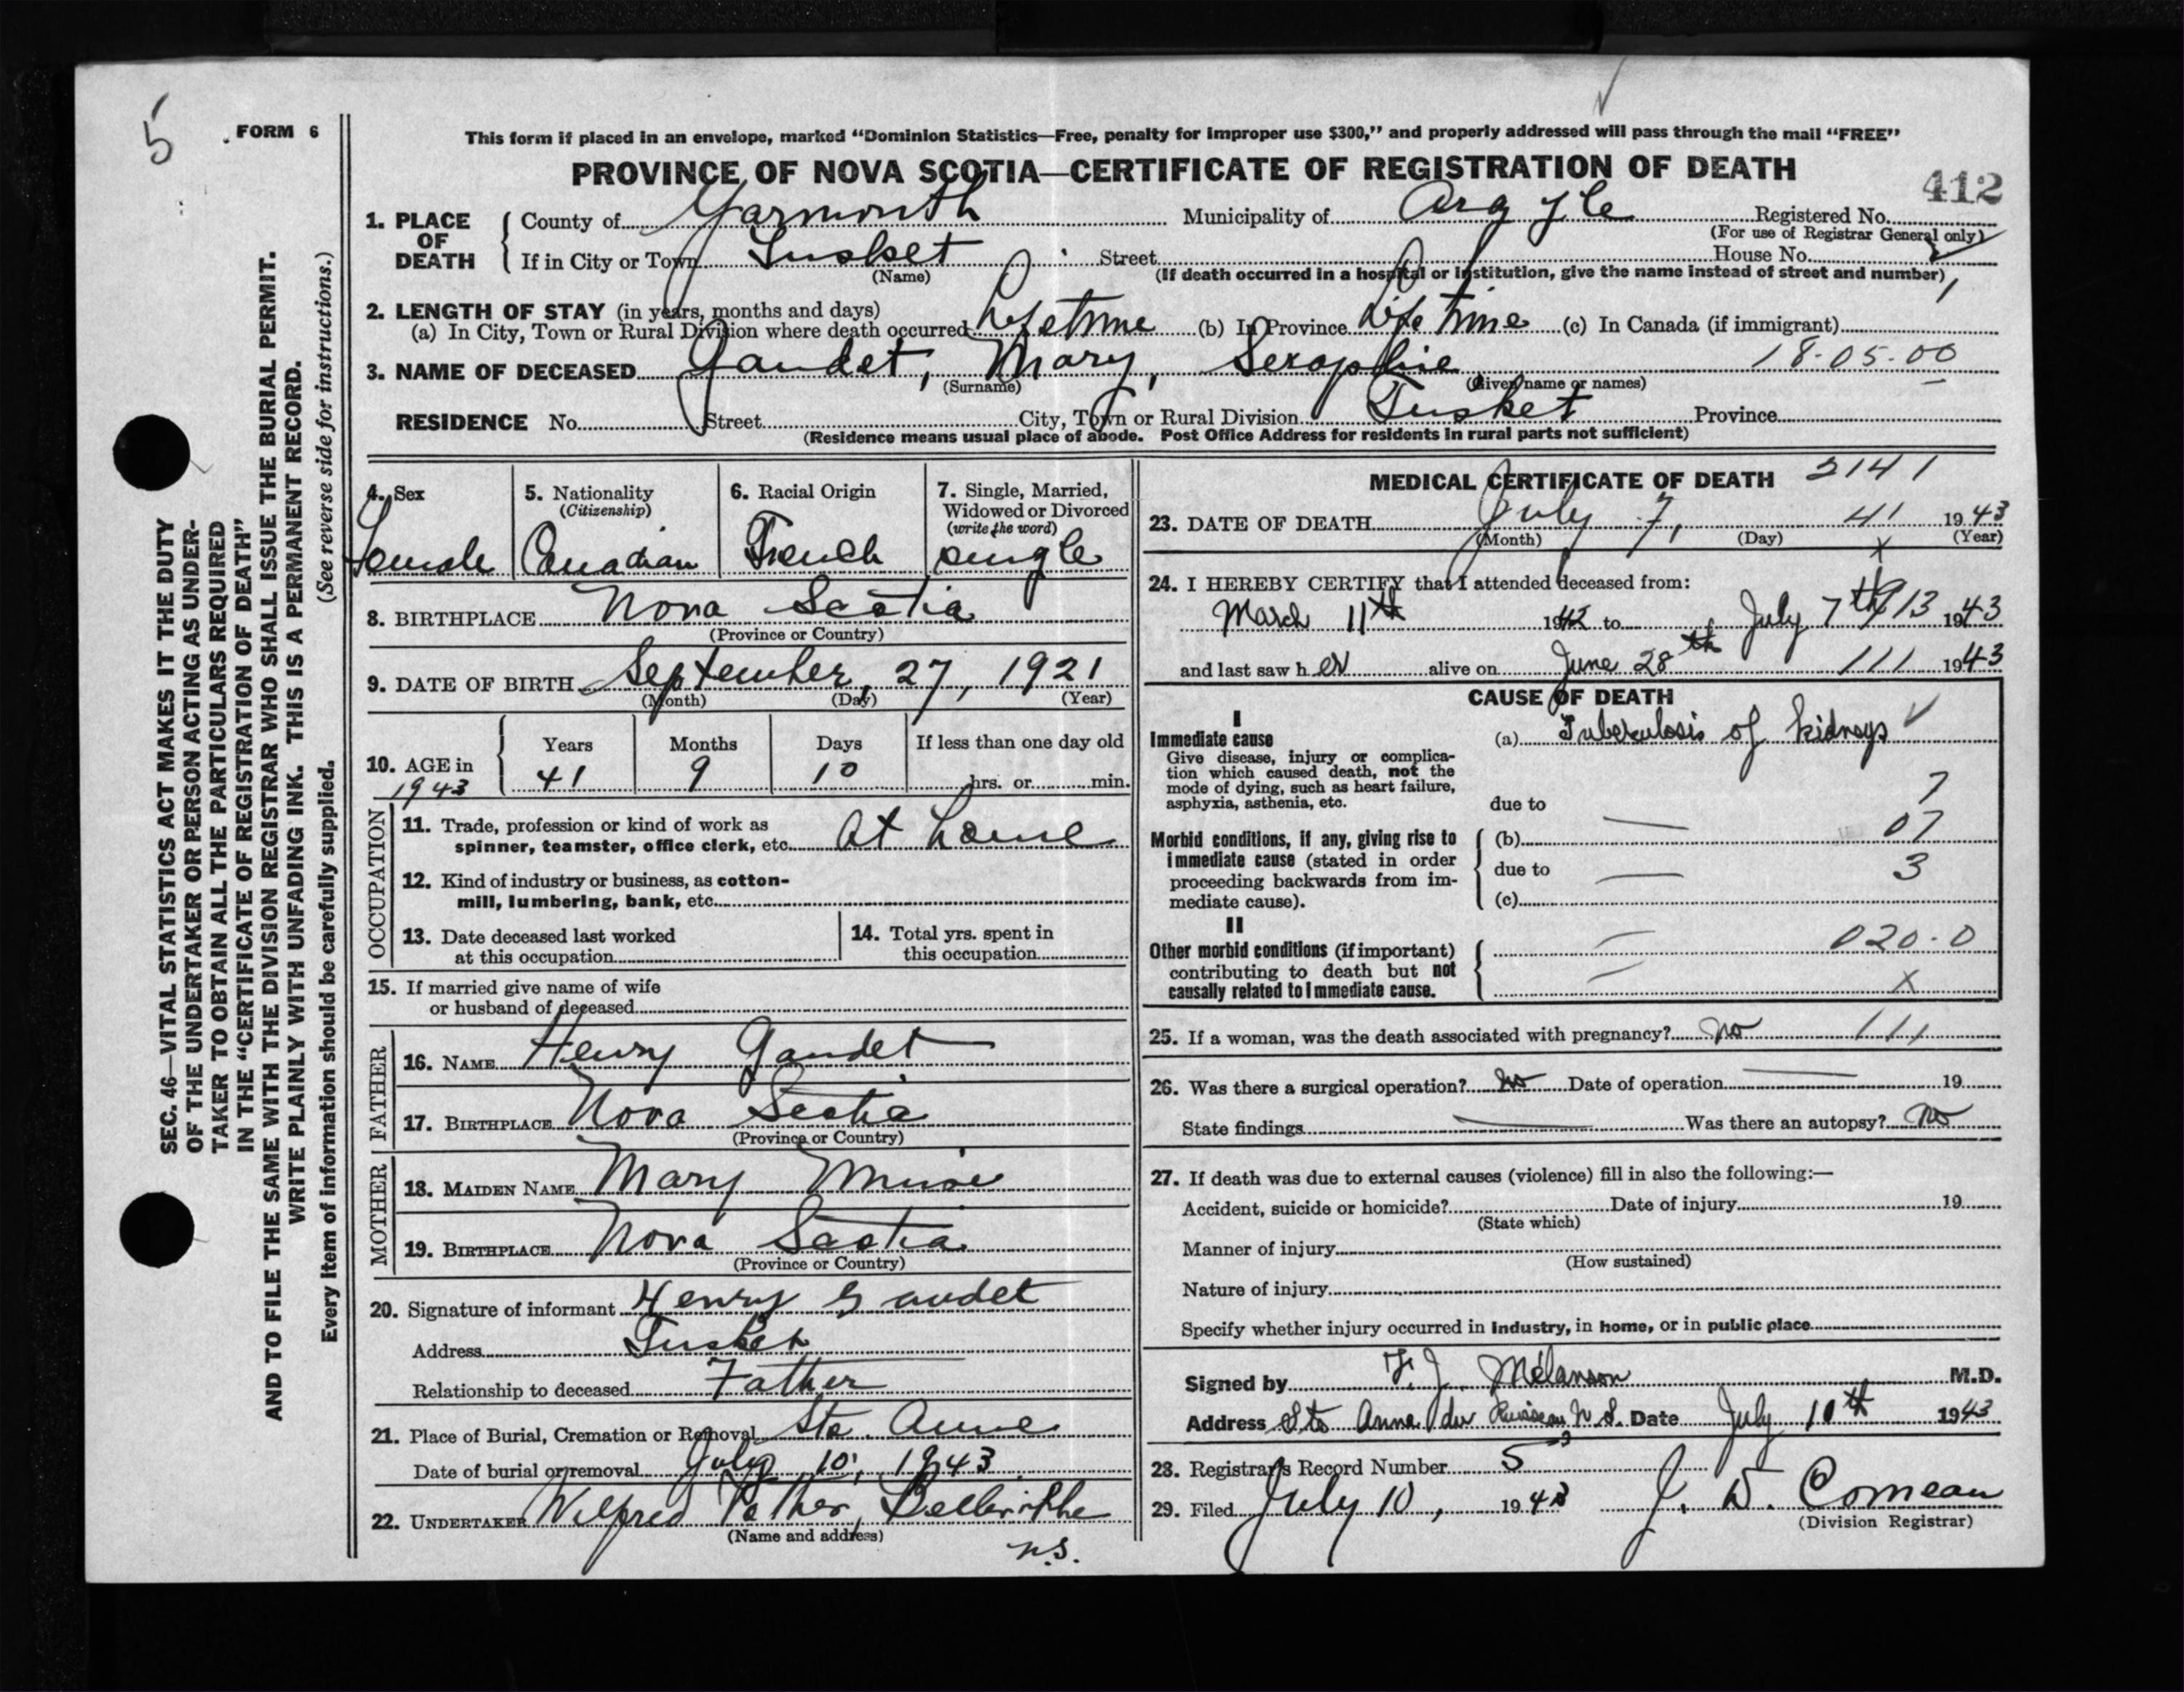 5
FORM 6
This form if placed in an envelope, marked "Dominion Statistics—Free, penalty for improper use $300," and properly addressed will pass through the mail "FREE"
PROVINCE OF NOVA SCOTIA—CERTIFICATE OF REGISTRATION OF DEATH
412
1. PLACE OF DEATH County of Yarmouth Municipality of Argyle Registered No.
(For use of Registrar General only)
If in City or Town Tusket Street House No.
(Name) (If death occurred in a hospital or institution, give the name instead of street and number)
2. LENGTH OF STAY (in years, months and days)
(a) In City, Town or Rural Division where death occurred Lifetime (b) In Province Life time (c) In Canada (if immigrant)
3. NAME OF DECEASED Gaudet, Mary, Seraphie 18-05-00
(Surname) (Given name or names)
RESIDENCE No. Street City, Town or Rural Division Tusket Province
(Residence means usual place of abode. Post Office Address for residents in rural parts not sufficient)
SEC. 46—VITAL STATISTICS ACT MAKES IT THE DUTY
OF THE UNDERTAKER OR PERSON ACTING AS UNDER-
TAKER TO OBTAIN ALL THE PARTICULARS REQUIRED
IN THE "CERTIFICATE OF REGISTRATION OF DEATH"
AND TO FILE THE SAME WITH THE DIVISION REGISTRAR WHO SHALL ISSUE THE BURIAL PERMIT.
WRITE PLAINLY WITH UNFADING INK. THIS IS A PERMANENT RECORD.
Every item of information should be carefully supplied. (See reverse side for instructions.)
4. Sex 5. Nationality 6. Racial Origin 7. Single, Married,
(Citizenship) Widowed or Divorced
(write the word)
Female Canadian French single
8. BIRTHPLACE Nova Scotia
(Province or Country)
9. DATE OF BIRTH September, 27, 1921
(Month) (Day) (Year)
10. AGE in Years Months Days If less than one day old
1943 41 9 10 hrs. or min.
OCCUPATION
11. Trade, profession or kind of work as
spinner, teamster, office clerk, etc. At home
12. Kind of industry or business, as cotton-
mill, lumbering, bank, etc.
13. Date deceased last worked
at this occupation
14. Total yrs. spent in
this occupation
15. If married give name of wife
or husband of deceased
FATHER
16. NAME Henry Gaudet
17. BIRTHPLACE Nova Scotia
(Province or Country)
MOTHER
18. MAIDEN NAME Mary Muise
19. BIRTHPLACE Nova Scotia
(Province or Country)
20. Signature of informant Henry Gaudet
Address Tusket
Relationship to deceased Father
21. Place of Burial, Cremation or Removal Ste. Anne
Date of burial or removal July 10, 1943
22. UNDERTAKER Wilfred Pothier, Belleville
(Name and address)
N.S.
MEDICAL CERTIFICATE OF DEATH 2141
23. DATE OF DEATH July 7, 41 1943
(Month) (Day) (Year)
x
24. I HEREBY CERTIFY that I attended deceased from:
March 11th 1942 to July 7th 1943
and last saw her alive on June 28th 111 1943
CAUSE OF DEATH
I
Immediate cause
Give disease, injury or complica-
tion which caused death, not the
mode of dying, such as heart failure,
asphyxia, asthenia, etc.
(a) Tuberculosis of kidneys
7
due to
Morbid conditions, if any, giving rise to
immediate cause (stated in order
proceeding backwards from im-
mediate cause).
(b) 07
due to 3
(c)
II
Other morbid conditions (if important)
contributing to death but not
causally related to immediate cause.
020-0
x
25. If a woman, was the death associated with pregnancy? no 111
26. Was there a surgical operation? no Date of operation 19
State findings Was there an autopsy? no
27. If death was due to external causes (violence) fill in also the following:—
Accident, suicide or homicide? Date of injury 19
(State which)
Manner of injury
(How sustained)
Nature of injury
Specify whether injury occurred in industry, in home, or in public place
Signed by F. J. Mélanson M.D.
Address Ste Anne du Ruisseau N.S. Date July 10th 1943
28. Registrar's Record Number 53
29. Filed July 10, 1943 J. W. Comeau
(Division Registrar)